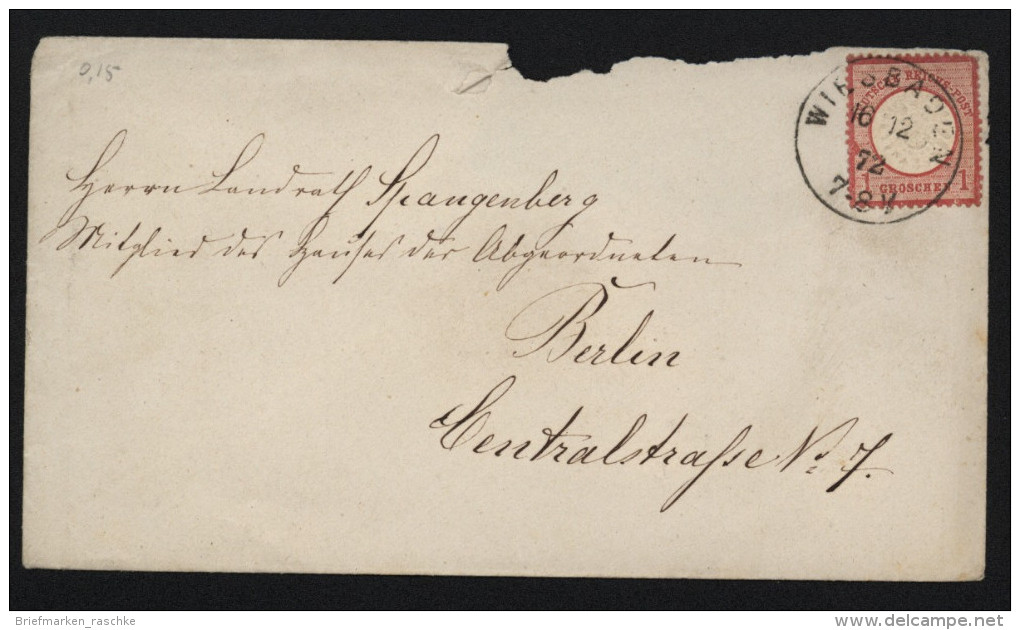 0,15
WIESBADEN
16 12
72
7-8 V
DEUTSCHE REICHS-POST
1 GROSCHEN 1
Herrn Landrath Spangenberg
Mitglied des Hauses der Abgeordneten
Berlin
Centralstraſse No 7.
Briefmarken_raschke
delcampe.net